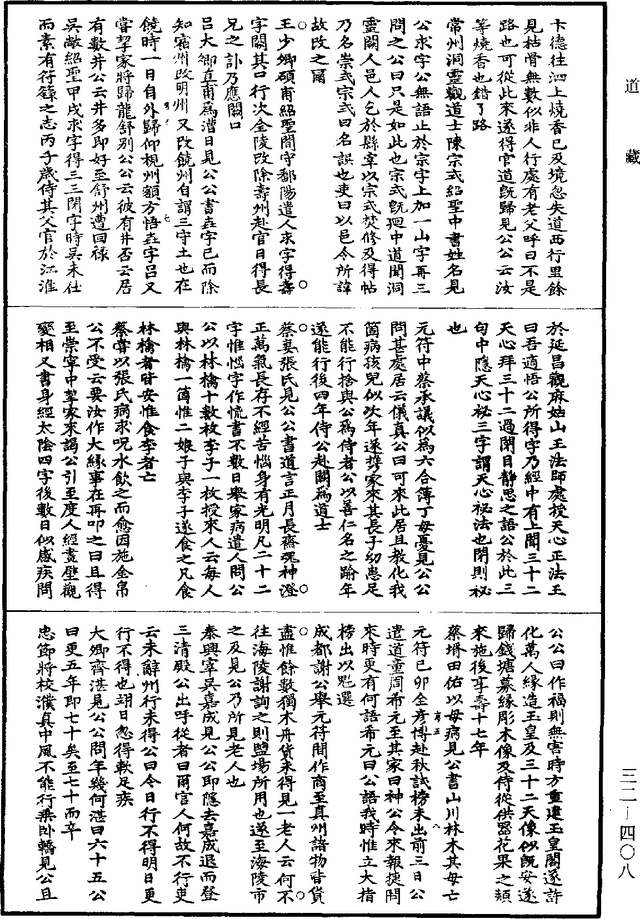 道藏
卞德往泗上燒香已及境忽失道西行里餘
見枯骨無數似非人行處有老父呼曰不是
路也可從此來遂得官道旣歸見公公云汝
等燒香也錯了路
常州洞靈觀道士陳宗式紹聖中書姓名見
公求字公無語止於宗字上加一山字再三
問之公曰只是如此也宗式旣迴中道聞洞
靈闕人邑人乞於縣宰以宗式焚修及得帖
乃名崇式宗式曰名誤也吏曰以邑令所諱
故改之爾
王少卿碩甫紹聖間守鄱陽遣人求字得壽
字闕其口行次金陵改除壽州赴官日得長
兄之訃乃應闕口
呂大卿真甫爲漕日見公公書垚字已而除
知宿州改明州又改饒州自謂三守土也在
饒時一日自外歸仰視州額方悟垚字呂又
嘗挈家將歸龍舒別公公云彼有井否云居
有數井公云井多即好至舒州遭回祿
吳敵紹聖甲戌求字得三三閉字時吳未仕
而素有符籙之志丙子歲侍其父官於江淮
於延昌觀麻姑山王法師處校天心正法王
曰吾適悟公所得字乃經中有上聞三十二
天心拜三十二過閉目靜思之語公於此三
句中隱天心祕三字謂天心祕法也閉則祕
也
元符中蔡承議似爲六合簿丁母憂見公公
問甚處居云儀真公曰可來此居且教化我
箇病孩兒似次年遂攜家來其長子幼患足
不能行捨與公爲侍者公以善仁名之踰年
遂能行後四年侍公赴闕爲道士
蔡妻張氏見公公書遺言正月長齋魂神澄
正萬氣長存不經苦惱身有光明凡二十二
字惟惱字作慌書不數日舉家病遣人問公
公以林檎十數枚李子一枚授來人云每人
與林檎一箇惟二娘子與李子遂食之凡食
林檎者皆安惟食李者亡
蔡嘗以張氏病求呪水飲之而愈因施金帛
公不受云要汝作大緣事在再叩之曰且得
至崇寧中挈家來謁公引至度人經畫壁觀
變相又書身經太陰四字後數日似感疾問
公公曰作福則無害時方重建玉皇閣遂許
化萬人緣造玉皇及三十二天像似旣安遂
歸錢塘募緣彫木像及侍從供器花果之類
來施後享壽十七年
蔡壻田佑以母病見公書山川林木其母亡
元符己卯全彥博赴秋試榜未出前三日公
遣道童周希元至其家曰神公令來報捷問
來時更有何語希元曰公語我時惟立大指
榜出以魁選
成都謝公舉元符間作商至真州諸物皆貨
盡惟餘數獨木舟貨未得見一老人云何不
往海陵謝詢之則鹽場所用也遂至海陵市
之及見公乃所見老人也
泰興宰吳嘉成見公公即隱去嘉成退而登
三清殿公出呼從者曰爾官人何故不行吏
云未辭州行未得公曰今日行不得明日更
行不得也翊日忽得軟足疾
大卿齊湛見公公問年幾何湛曰六十五公
曰更五年即七十矣至七十而卒
忠節將校濮真中風不能行乘卧轎見公且
三二—四〇八